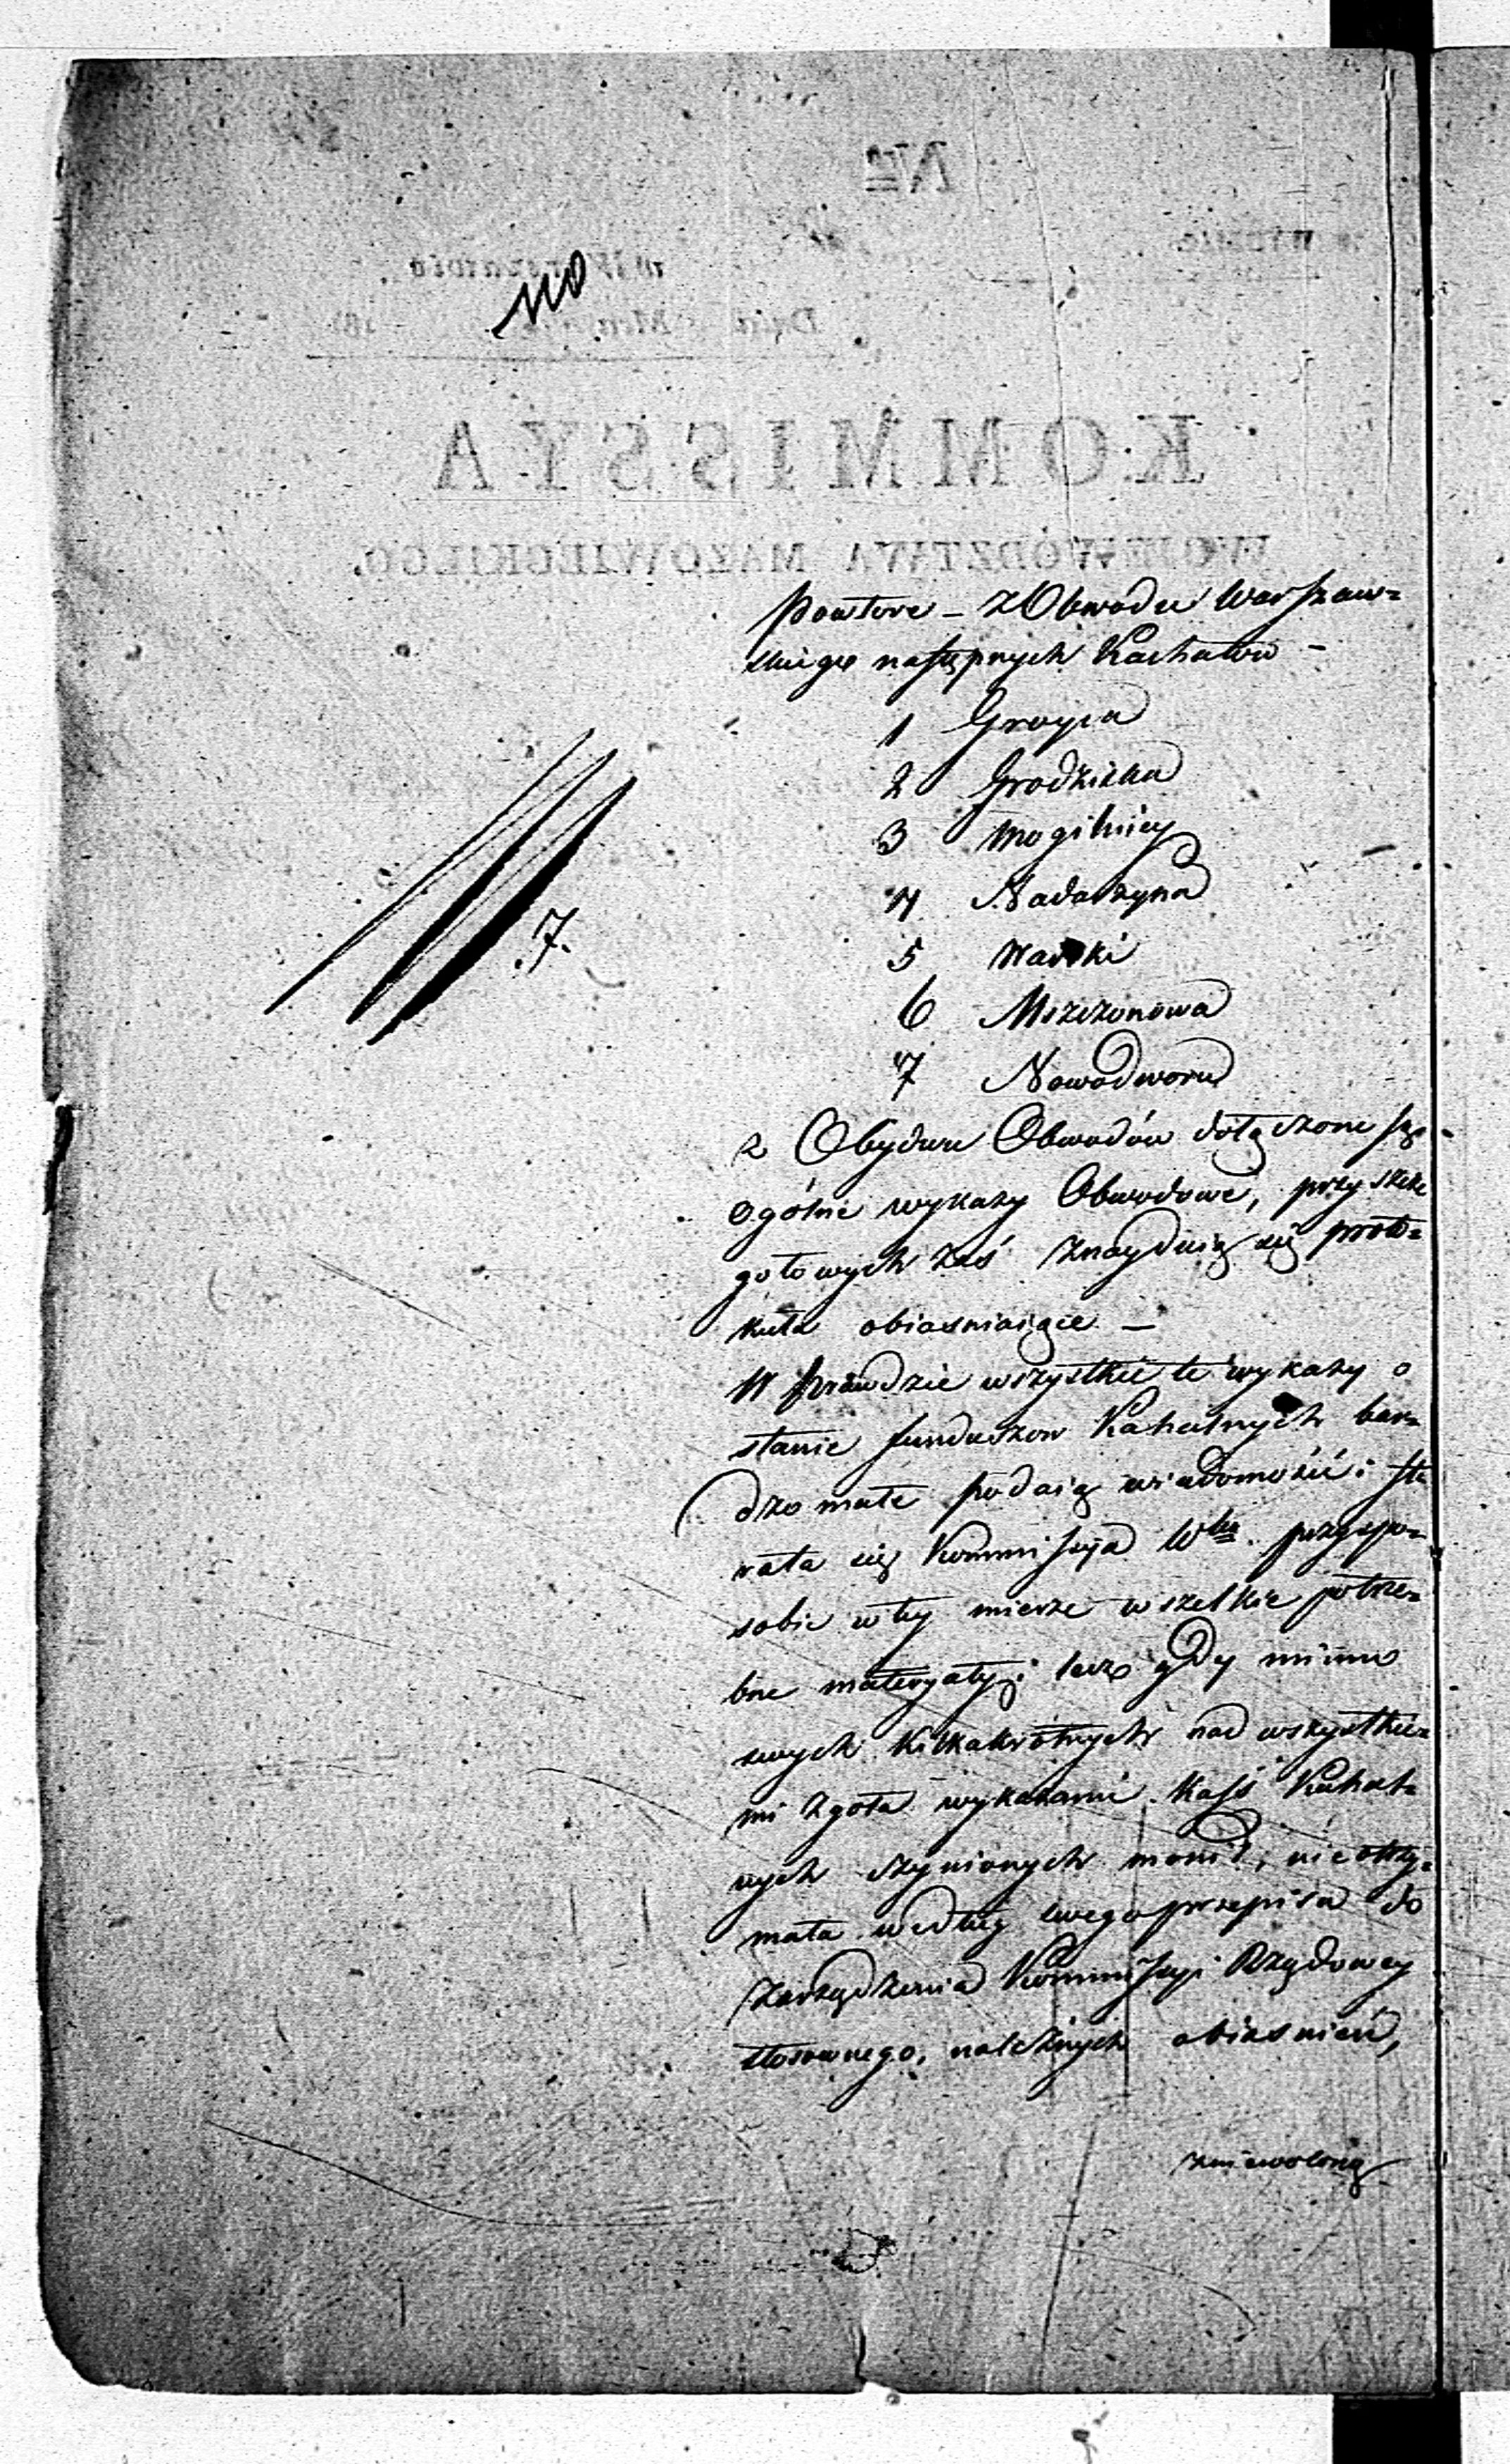 Powtore – z Obwodu Warszaw=
skiego następnych Kachałów –
1 Groyca
2 Grodziska
3 Mogilnicy
4 Nadarzyna
5 Warki
6 Mszczonowa
7 Nowodworu
.7.
z Obydwu Obwodów dołączone są
ogólne wykazy Obwodowe, przy szcze
gołowych zaś znayduią się proto=
kuła obiasniaiące –
W prawdzie wszystkie te wykazy o
stanie funduszow Kahalnych bar=
dzo małe podaią wiadomości; sta
rała się Kommissyia Wka przyspo=
sobić w tey mierze wszelkie potrze=
bne materyały; lecz gdy mimo
swych kilkakrotnych nad wszystkie=
mi zgoła wykazami Kass Kahal=
nych czynionych monit, nie otrzy=
mała według swego przepisu do
zarządzenia Kommissyi Rządowey
stosownego, należnych obiasnień,
zniewoloną